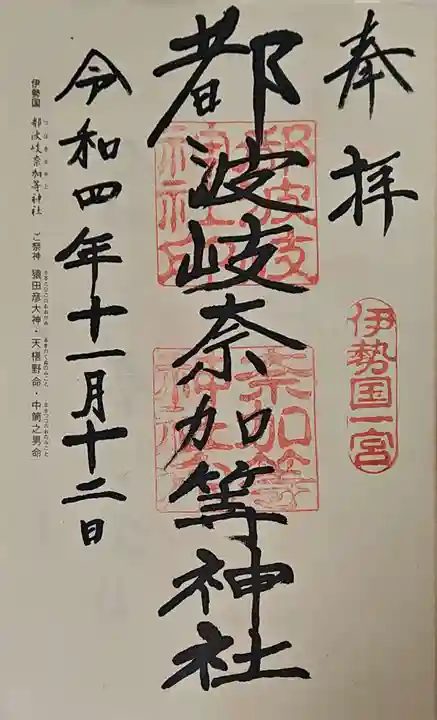 奉拝
伊勢国一宮
都波岐奈加等神社
都波岐神社印
奈加等神社印
令和四年十一月十二日
伊勢国 都波岐奈加等神社 ご祭神 猿田彦大神・天椹野命・中筒之男命